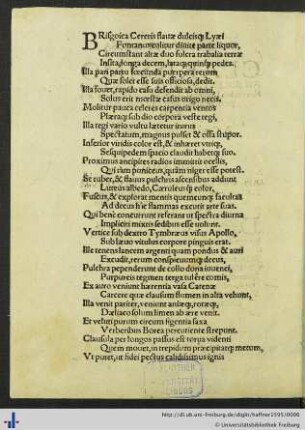 BRisgoica Cereris flatæ dulcisq; Lyæi
Circumstant altæ duo folcra trabalia terræ
Instar longa decem, lataq; quinq; pedes.
Illa pari partu fœcunda puerpera rerum
Quæ solet esse suis officiosa, dedit.
Illa fouet, rapido casu defendit ab omni,
Molitur pauca celeris carpenta ventos
Plæraq; sub dio corpora veste tegi,
Illa tegi vario vultu lætetur
Spectatum, magnus posset & ossa stupor.
Inferior viridis color est, & inhæret vtriq;
Sesquipedem spacio claudit habetq; suo.
Proximus ancipites radios immittit ocellis,
Qui cum puniceus, quàm niger esse potest.
Et ruber, & flauus pulchris ascensibus addunt
Luteus albedo, Cæruleus q; color,
Fuscus, & explorat mentis quemcunq; facultas
Ad decus hic flammas excutit arte suas.
Qui benè concurrunt referant ut spectra diurna
Impliciti mixtis sedibus esse volunt.
Vertice sub dextro Tymbræus visus Apollo,
Sub læuo vitulus corpore pinguis erat.
Ille tenens lancem argenti quam pondus & auri
Excudit, rerum conspicuumq; decus,
Pulchra pependerunt de collo dona iuuenci,
Purpureis tegmen terga tulêre comis,
Ex auro veniunt hærentia vasa Catenæ
Carcere quæ clausum flumen in alta vehunt,
Illa venit pariter, veniunt aniæq;, rotæq;,
Dæliaco solum limen ab ære venit.
Et veluti purum circum figentia saxa
Verberibus Borea percutiente strepunt.
Clausola per longos passus est torua videnti
Quem mouet, in trepidum præcipitatq; metum,
Vt putet, ut fidei pectus calidissimus ignis
http://dl.ub.uni-freiburg.de/diglit/haffner1595/0008
© Universitätsbibliothek Freiburg